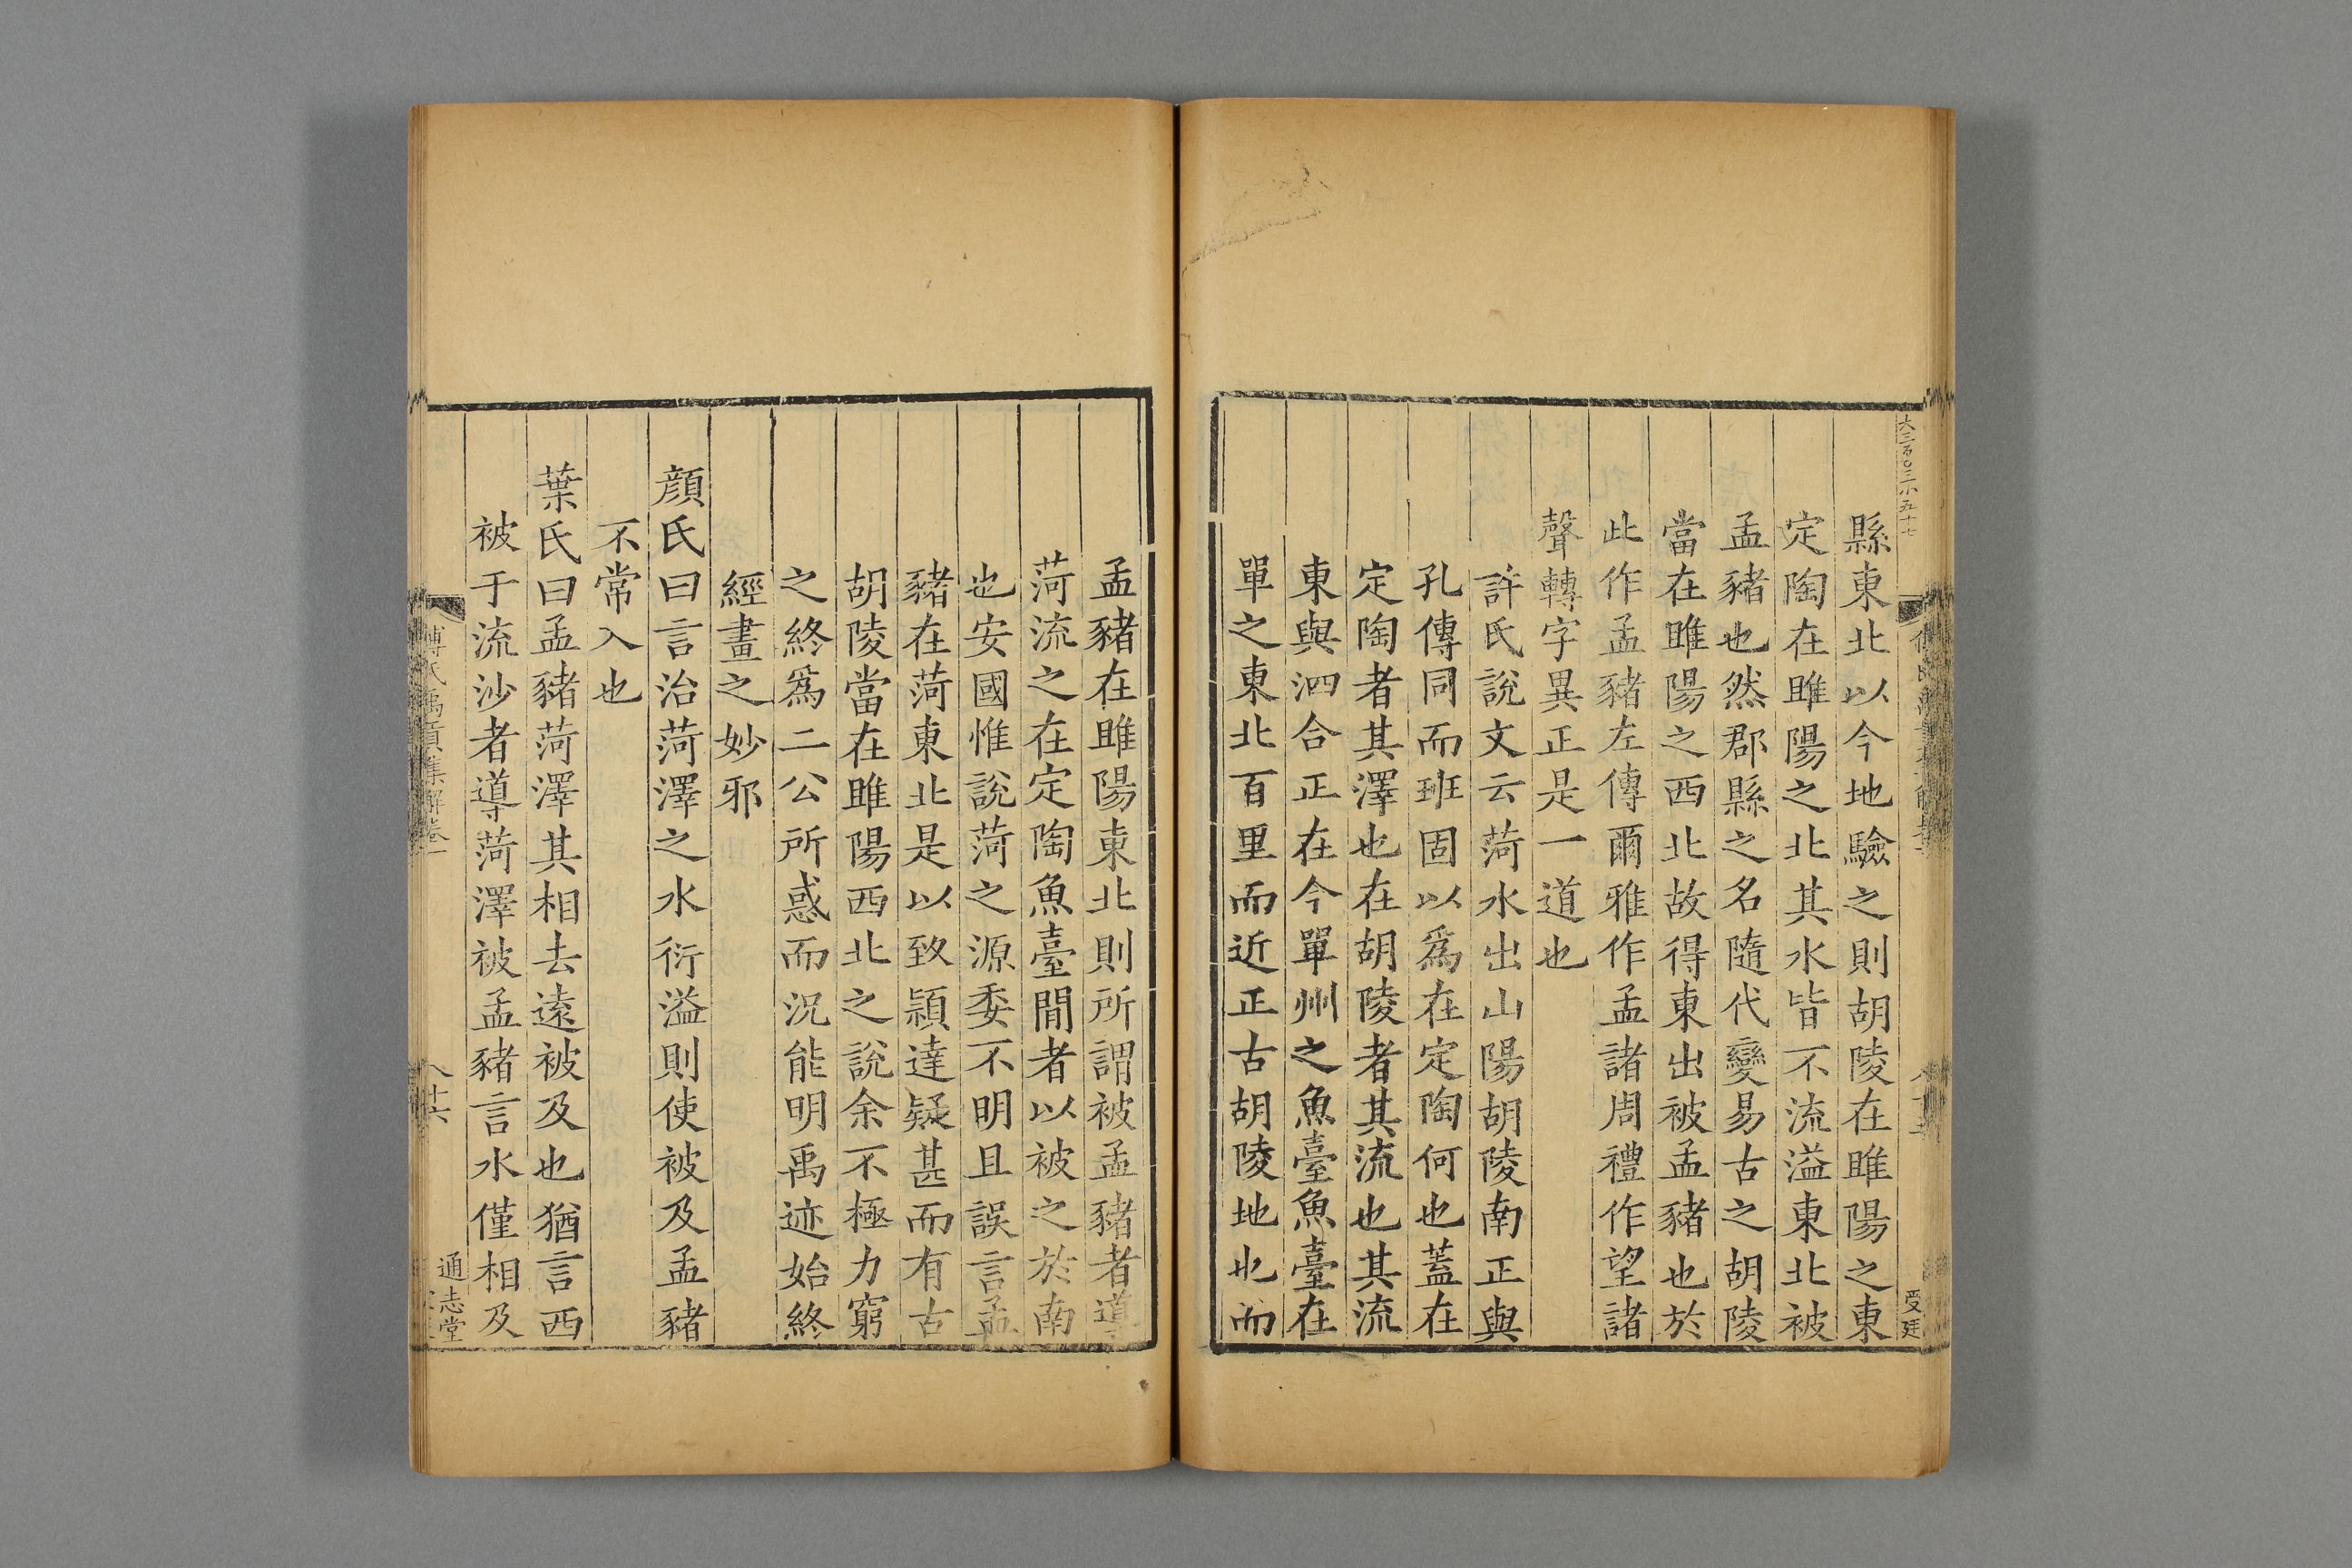 大三百〇三小五十七
縣東北以今地驗之則胡陵在雎陽之東
定陶在雎陽之北其水皆不流溢東北被
孟豬也然郡縣之名隨代變易古之胡陵
當在雎陽之西北故得東出被孟豬也於
此作孟豬左傳爾雅作孟諸周禮作望諸
聲轉字異正是一道也
許氏說文云菏水出山陽胡陵南正與
孔傳同而班固以爲在定陶何也蓋在
定陶者其澤也在胡陵者其流也其流
東與泗合正在今單州之魚臺魚臺在
單之東北百里而近正古胡陵地也而
孟豬在雎陽東北則所謂被孟豬者導
菏流之在定陶魚臺閒者以被之於南
也安國惟說菏之源委不明且誤言孟
豬在菏東北是以致穎達疑甚而有古
胡陵當在雎陽西北之說余不極力窮
之終爲二公所惑而況能明禹迹始終
經畫之妙邪
顔氏曰言治菏澤之水衍溢則使被及孟豬
不常入也
葉氏曰孟豬菏澤其相去遠被及也猶言西
被于流沙者導菏澤被孟豬言水僅相及
傅氏禹貢集解卷一
十六
通志堂